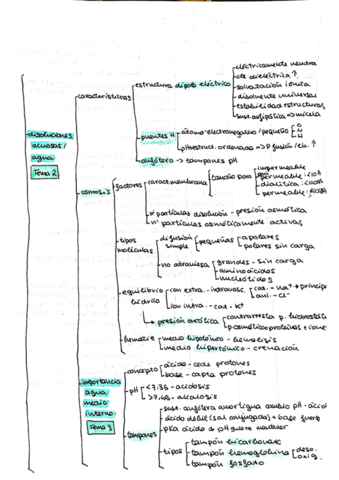 eléctricamente neutra
estructura dipolo eléctrico
cte dieléctrica ?
solvatación iónica
características
disolvente universal
estabilidad estructuras
sust. anfipática → micela
puentes H
átomo electronegativo/pequeño
O
N
F
ordenado → P fusión /eb. ?
anfótero → tampones pH
disoluciones
acuosas /
agua
Tema 2
osmosis
factores
caract membrana
tamaño poro
impermeable
permeable
dialítica
permeable
nº partículas disolución - presión osmótica
nº partículas osmóticamente activas
tipos
moléculas
difusión
simple
pequeñas
apolares
polares sin carga
no atraviesa
grandes - sin carga
aminoácidos
nucleótidos
equilibrio
hídrico
ion extra. - intravasc.
cat. - Na+ → princip
ani. - Cl-
ion intra. - cat - K+
→ presión oncótica
contrarresta p. hidrostáti
p. osmótica proteínas + iones
hematíe
medio hipotónico - hemolisis
medio hipertónico - crenación
importancia
agua
medio
interno
Tema 3
concepto
ácido - cede protones
base - capta protones
pH
<7.35 - acidosis
>7.45 - alcalosis
tampones
sust. anfótera amortigua cambio pH - ácid
ácido débil (sal conjugada) + base fuerte
pKa ácido ≈ pH quiere mantener
tipos
tampón bicarbonato
tampón hemoglobina
deso.
oxig.
tampón fosfato